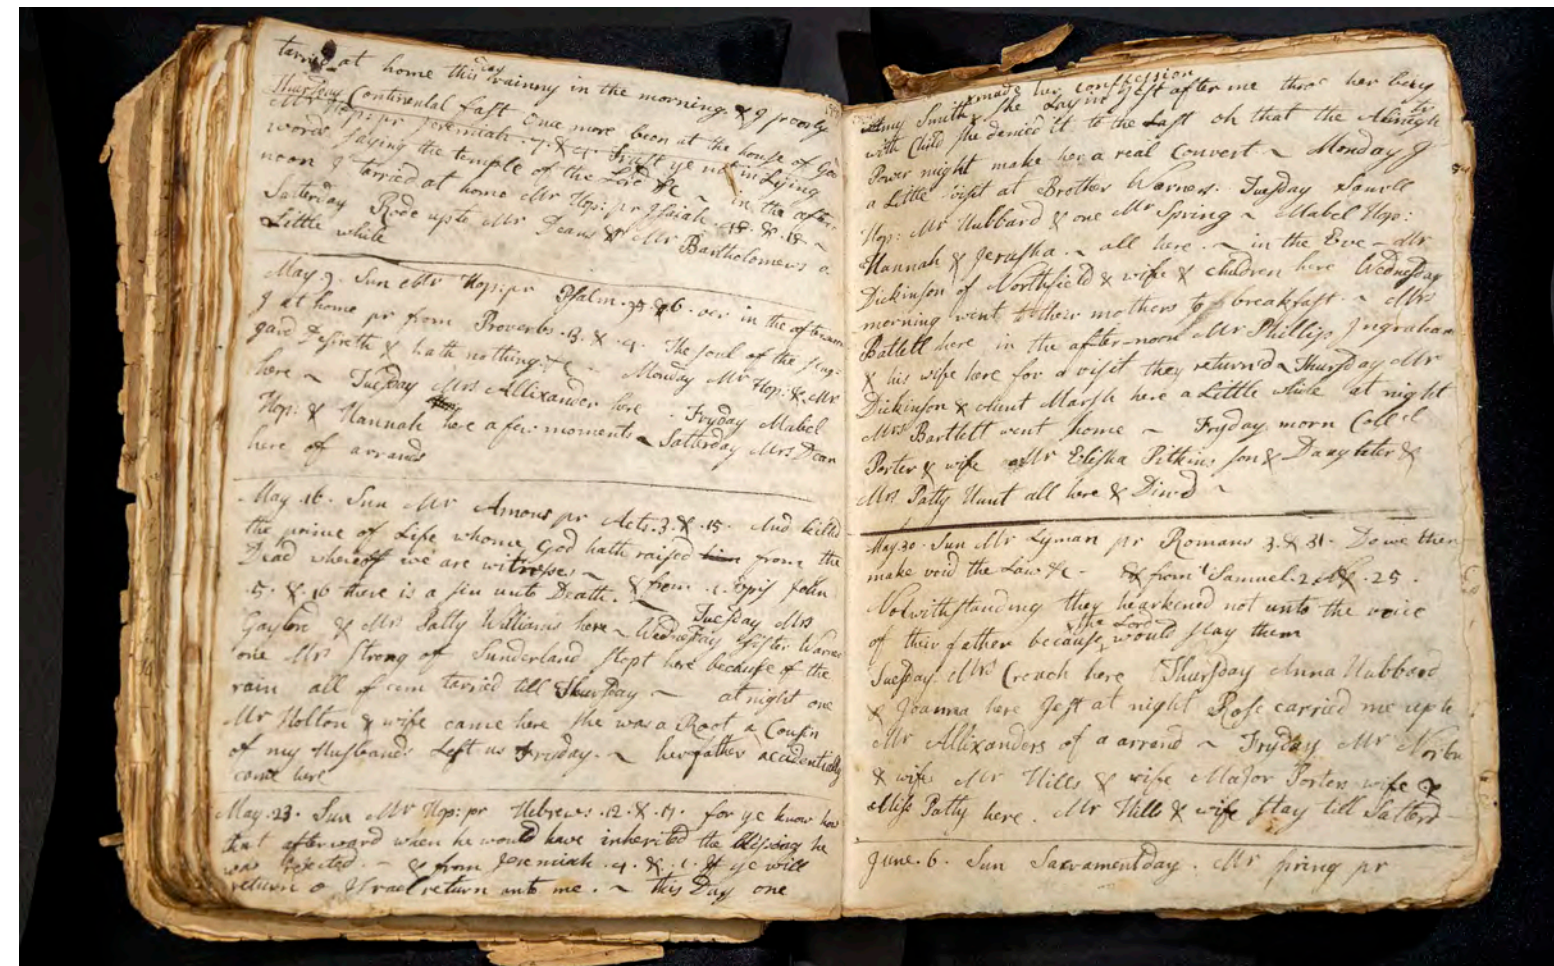 tarried at home this day rainny in the morning & I poorly
Thursday Continental fast once more been at the house of God
Mr Hop: pr Jeremiah . 7 . & . 4 . Trust ye not in Lying
words saying the temple of the Lord &c ~ in the after-
noon I tarried at home Mr Hop: pr Isaiah . 58 .
Satterday Rode up to Mr Deans & Mr Bartholomews a
Little while
May . 9 . Sun Mr Hop: pr Psalm . & 6 . in the afternoon
I at home pr from Proverbs . 13 . & . 4 . The soul of the slug-
gard Desireth & hath nothing &c ~ Monday Mr Hop: & Mr
here ~ Tuesday Mrs Allixander here . Fryday Mabel
Hop: & Hannah here a few moments ~ Satterday Mrs Dean
here of arrands
May . 16 . Sun Mr Amous pr Acts . 3 . & . 15 . And killed
the prince of Life whome God hath raised him from the
Dead whereoff we are witnesses ~ & from 1 Epis John
. 5 . & . 16 there is a sin unto Death . ~ Tuesday Mrs
Gaylord & Mrs Sally Williams here ~ Wednesday Sister Warner
one Mr Strong of Sunderland stopt here because of the
rain all of em tarried till Thursday ~ at night one
Mr Holton & wife came here she was a Root a Cousin
of my Husbands Left us Fryday . ~ her father accidentially
came here
May . 23 . Sun Mr Hop: pr Hebrews . 12 . & . 17 . for ye know how
that afterward when he would have inherited the blessing he
was rejected . ~ & from Jeremiah . 4 . & . 1 . If ye will
return o Israel return unto me . ~ this Day one
Amy Smith made her confession she Laying Jest after me thro her being
with Child she denied it to the Last oh that the Almigh ty
Power might make her a real Convert ~ Monday I
a Little visit at Brother Warners . Tuesday Samll
Hop: Mr Hubbard & one Mr Spring ~ Mabel Hop:
Hannah & Jerusha . ~ all here . ~ in the Eve ~ Mr
Dickinson of Northfield & wife & children here Wednesday
morning went to their mothers to breakfast . ~ Mrs
Batlett here in the after-noon Mr Phillips Ingraham
& his wife here for a visit they returnd ~ Thursday Mr
Dickinson & Aunt Marsh here a Little while at night
Mrs Bartlett went home ~ Fryday morn Coll
Porter & wife Mr Elisha Pitkins son & Daughter &
Mrs Patty Hunt all here & Din'd ~
May 30 . Sun Mr Lyman pr Romans 3 . & 31 . Do we then
make void the Law &c - & from 1 Samuel . 2 . & . 25 .
Notwithstanding they hearkened not unto the voice
of their father because the Lord would slay them
Tuesday Mrs Crouch here Thursday Anna Hubbard
& Joanna here Jest at night Rose carried me up to
Mr Allixanders of a arrand ~ Fryday Mr
& wife Mr Hills & wife Major Porters wife &
Miss Patty here . Mr Hills & wife stay till Satterd-
June . 6 . Sun Sacramentday . Mr spring pr